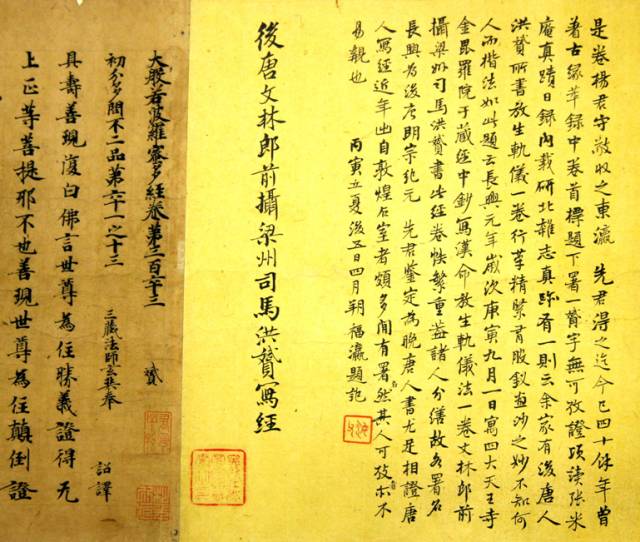 是卷楊君守敬收之東瀛 先君得之迄今已四十餘年曾
著古緣萃錄中卷首標題下署一贇字無可攷證頃讀張米
庵真蹟日錄內載研北雜志真跡有一則云余家有後唐人
洪贇所書放生軌儀一卷行筆精緊有股釵畫沙之妙不知何
人而楷法如此題云長興元年歲次庚寅九月一日寓四大天王寺
金毘羅院于藏經中鈔寫漢命放生軌儀法一卷文林郎前
攝梁州司馬洪贇書此經卷帙繁重蓋諸人分繕故各署名
長興為後唐明宗紀元 先君鑒定為晚唐人書尤足相證唐
人寫經近年出自敦煌石室者頗多間有署然其人可攷亦不
易覯也 丙寅立夏後五日四月朔福瀛題記
後唐文林郎前攝梁州司馬洪贇寫經
大般若波羅蜜多經卷第三百六十三 貳
初分多問不二品第六十一之十三
三藏法師玄奘奉 詔譯
具壽善現復白佛言世尊為住勝義證得无
上正等菩提耶不也善現世尊為住顛倒證